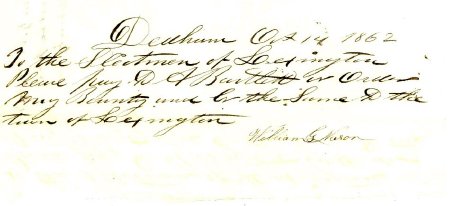 Dedham Oct 14 1862
To the Selectmen of Lexington
Please pay D A Bartlett or Order
my Bounty and the Same to the
town of Lexington
William G Nixon